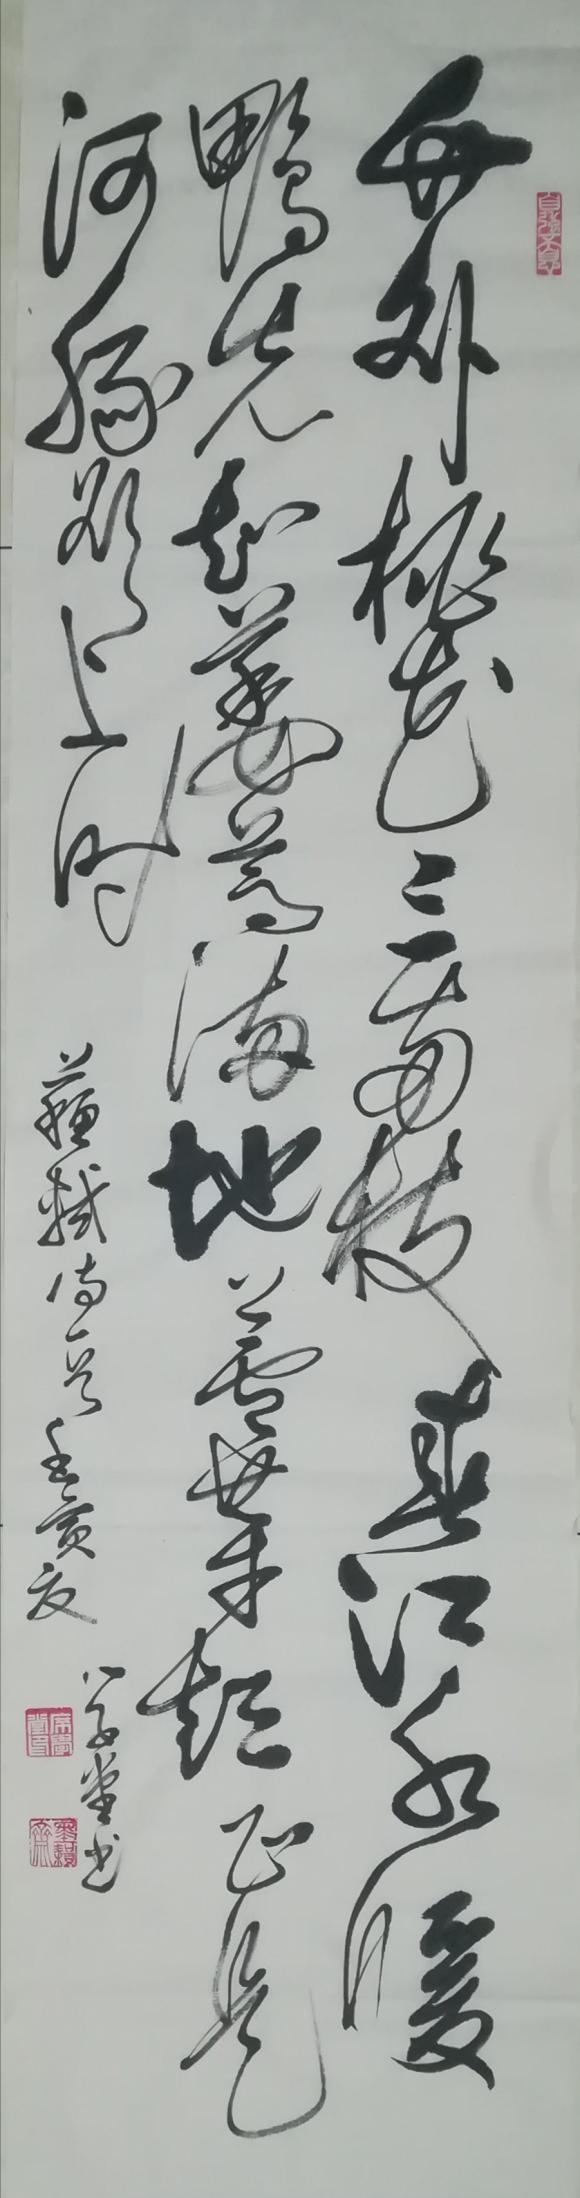 竹外桃花三两枝春江水暖
鸭先知蒌蒿满地芦芽短正是
河豚欲上时
苏轼诗一首壬寅夏
学堂书
自强不息